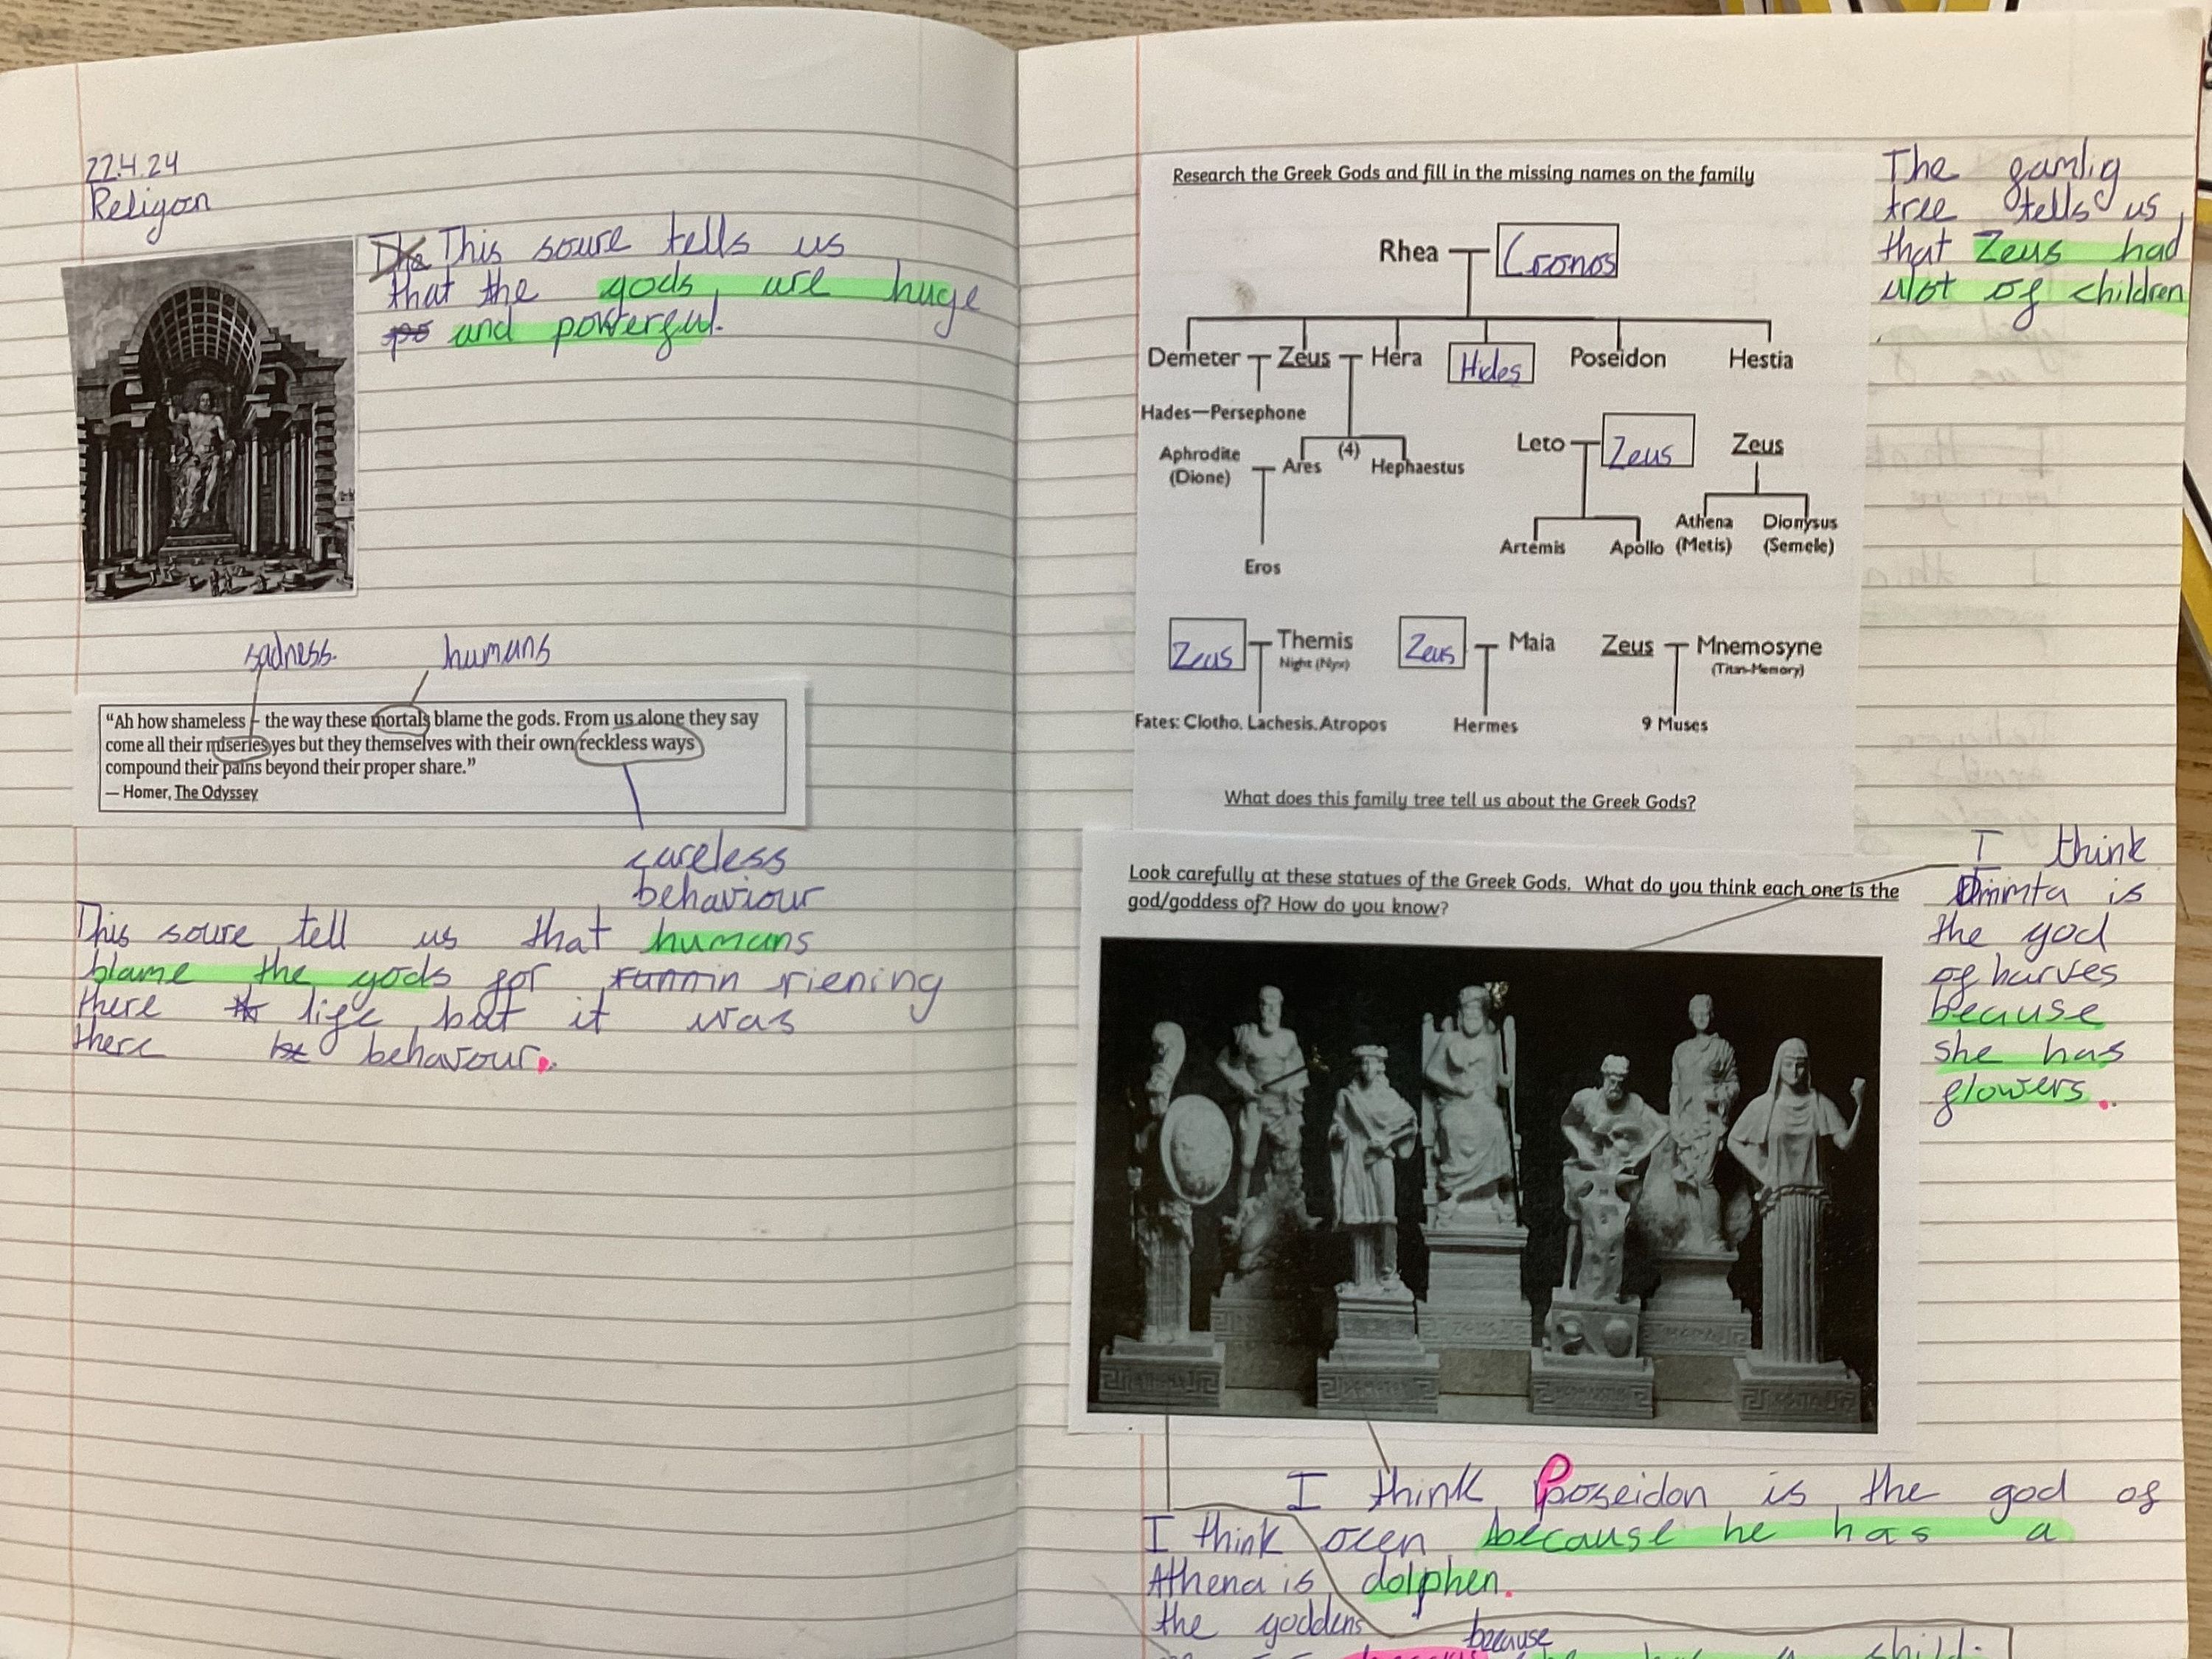 22.4.24
Religon
The This soure tells us
that the gods are huge
po and powerful.
sadness.
humans
“Ah how shameless – the way these mortals blame the gods. From us alone they say
come all their miseries yes but they themselves with their own reckless ways
compound their pains beyond their proper share.”
— Homer, The Odyssey
careless
behaviour
This soure tell us that humans
blame the gods for runnin riening
there life but it was
there be behavour.
Research the Greek Gods and fill in the missing names on the family
Rhea Cronos
Demeter Zeus Hera Hides Poseidon Hestia
Hades—Persephone
Aphrodite
(Dione)
Ares (4) Hephaestus
Leto Zeus Zeus
Artemis Apollo
Athena
(Metis)
Dionysus
(Semele)
Eros
Zeus Themis
Night (Nyx)
Zeus Maia
Zeus Mnemosyne
(Titan-Memory)
Fates: Clotho, Lachesis, Atropos
Hermes
9 Muses
What does this family tree tell us about the Greek Gods?
The famlig
tree tells us
that Zeus had
alot of children
.
Look carefully at these statues of the Greek Gods. What do you think each one is the
god/goddess of? How do you know?
I think
is
the god
of harves
because
she has
flowers.
I think Poseidon is the god of
ocen because he has a
dolphen.
I think
Athena is
the goddens
because